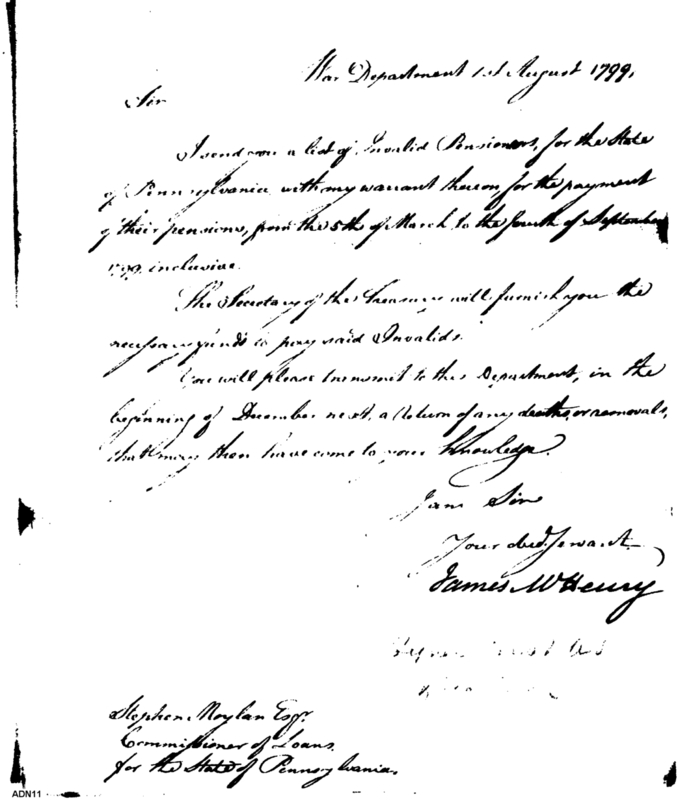 War Department 1st August 1799.
Sir
I send you a list of Invalid Pensioners, for the State
of Pennsylvania with my warrant thereon, for the payment
of their pensions, from the 5th of March to the fourth of September
1799 inclusive.
The Secretary of the Treasury will furnish you the
necessary funds to pay said Invalids.
You will please transmit to this Department, in the
beginning of December next, a return of any deaths, or removals,
that may then have come to your knowledge.
I am Sir
Your obed. servant
James McHenry
Stephen Moylan Esqr.
Commissioner of Loans.
for the State of Pennsylvania.
ADN11